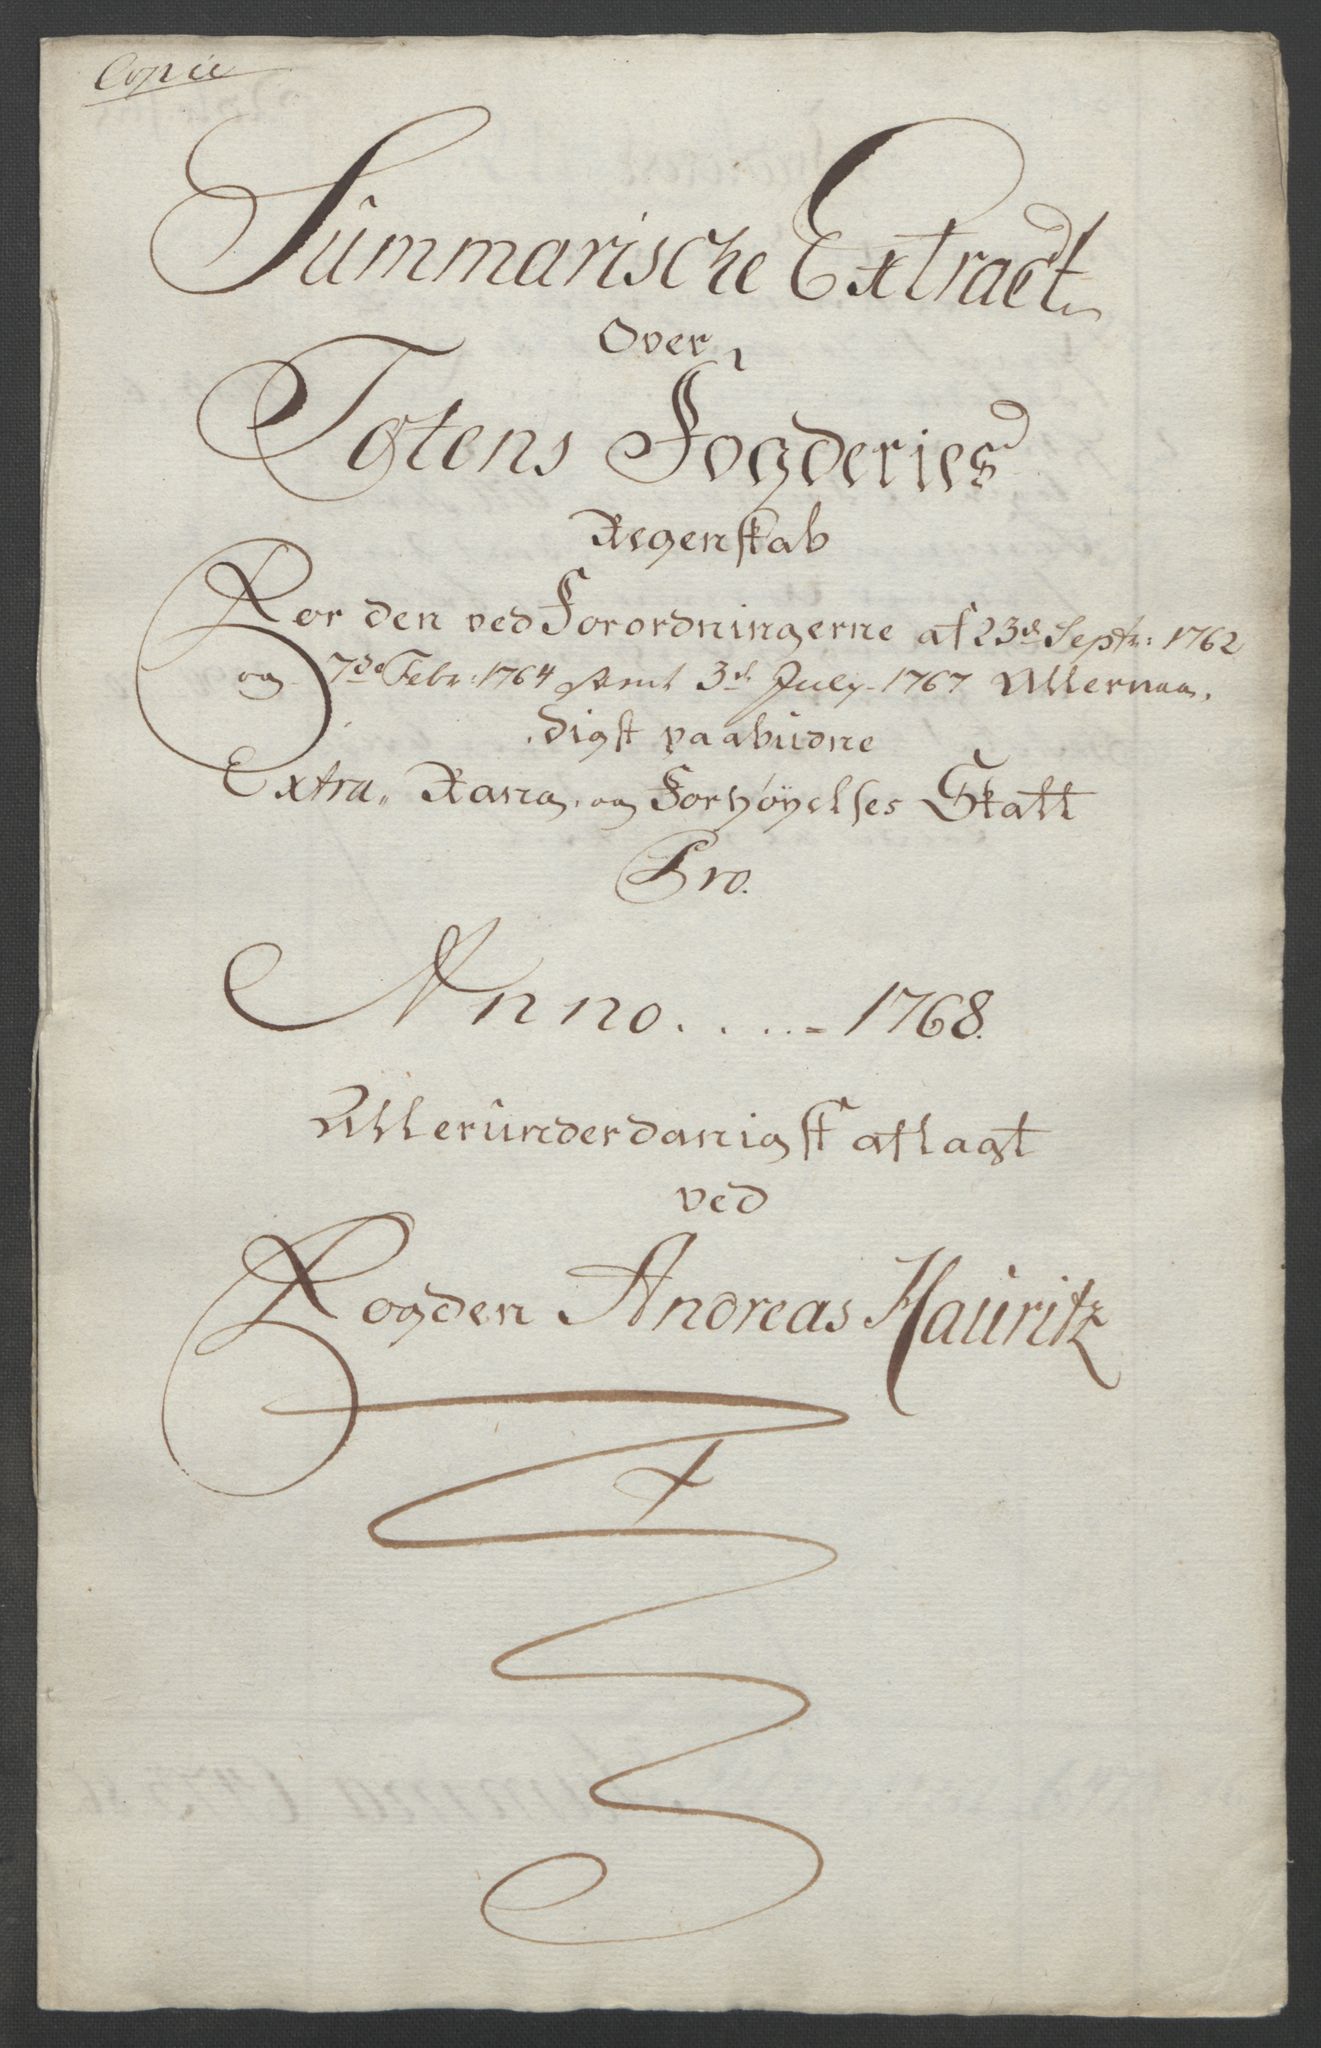 Copie
Summarische Extract
Over
Totens Fogderies
Regenskab
For den ved Forordningerne af 23de Septr: 1762
og 7de Febr: 1764 samt 3de July 1767 Allernaa,
digst paabudne
Extra,, Rang, og Forhøyelses Skatt
Pro.
Anno..... 1768.
Allerunderdanigst aflagt
ved
Fogden Andreas Hauritz